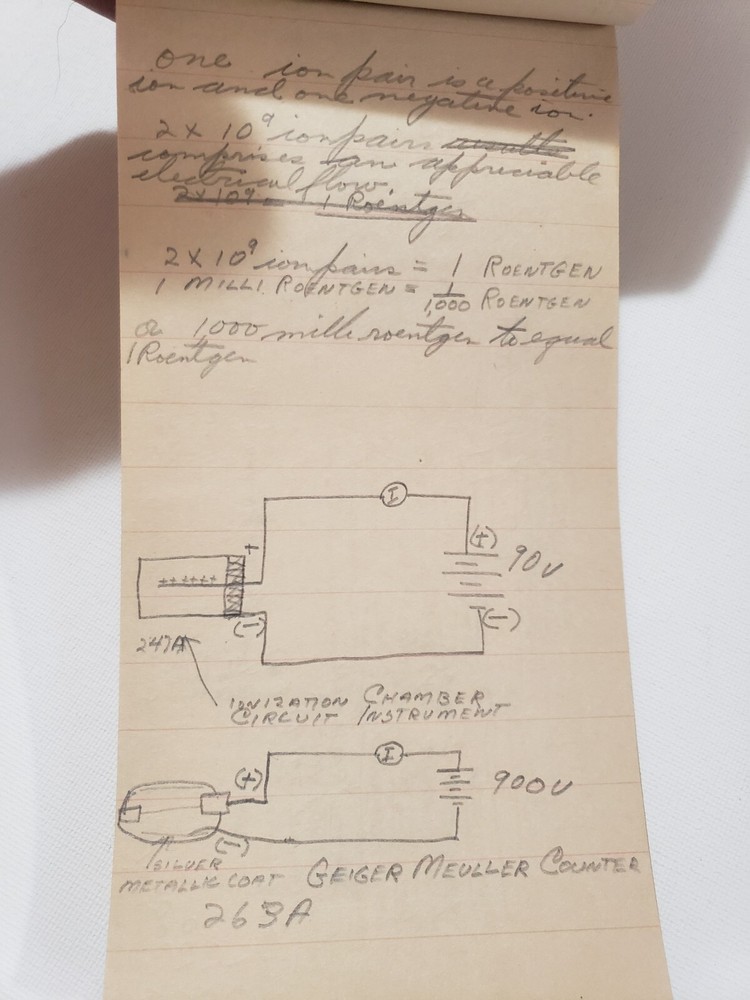 one ion pair is a positive
ion and one negative ion.
2 x 10⁹ ion pairs results
comprises an appreciable
electrical flow.
2x10⁹ = 1 Roentgen
2 x 10⁹ ion pairs = 1 ROENTGEN
1 MILLI. ROENTGEN = 1/1,000 ROENTGEN
or 1,000 milliroentgen to equal
1 Roentgen
I
+
(+)
90V
++ ++++
(-)
(-)
247A
IONIZATION CHAMBER
CIRCUIT INSTRUMENT
I
(+)
900V
(-)
SILVER
METALLIC COAT
GEIGER MEULLER COUNTER
263A